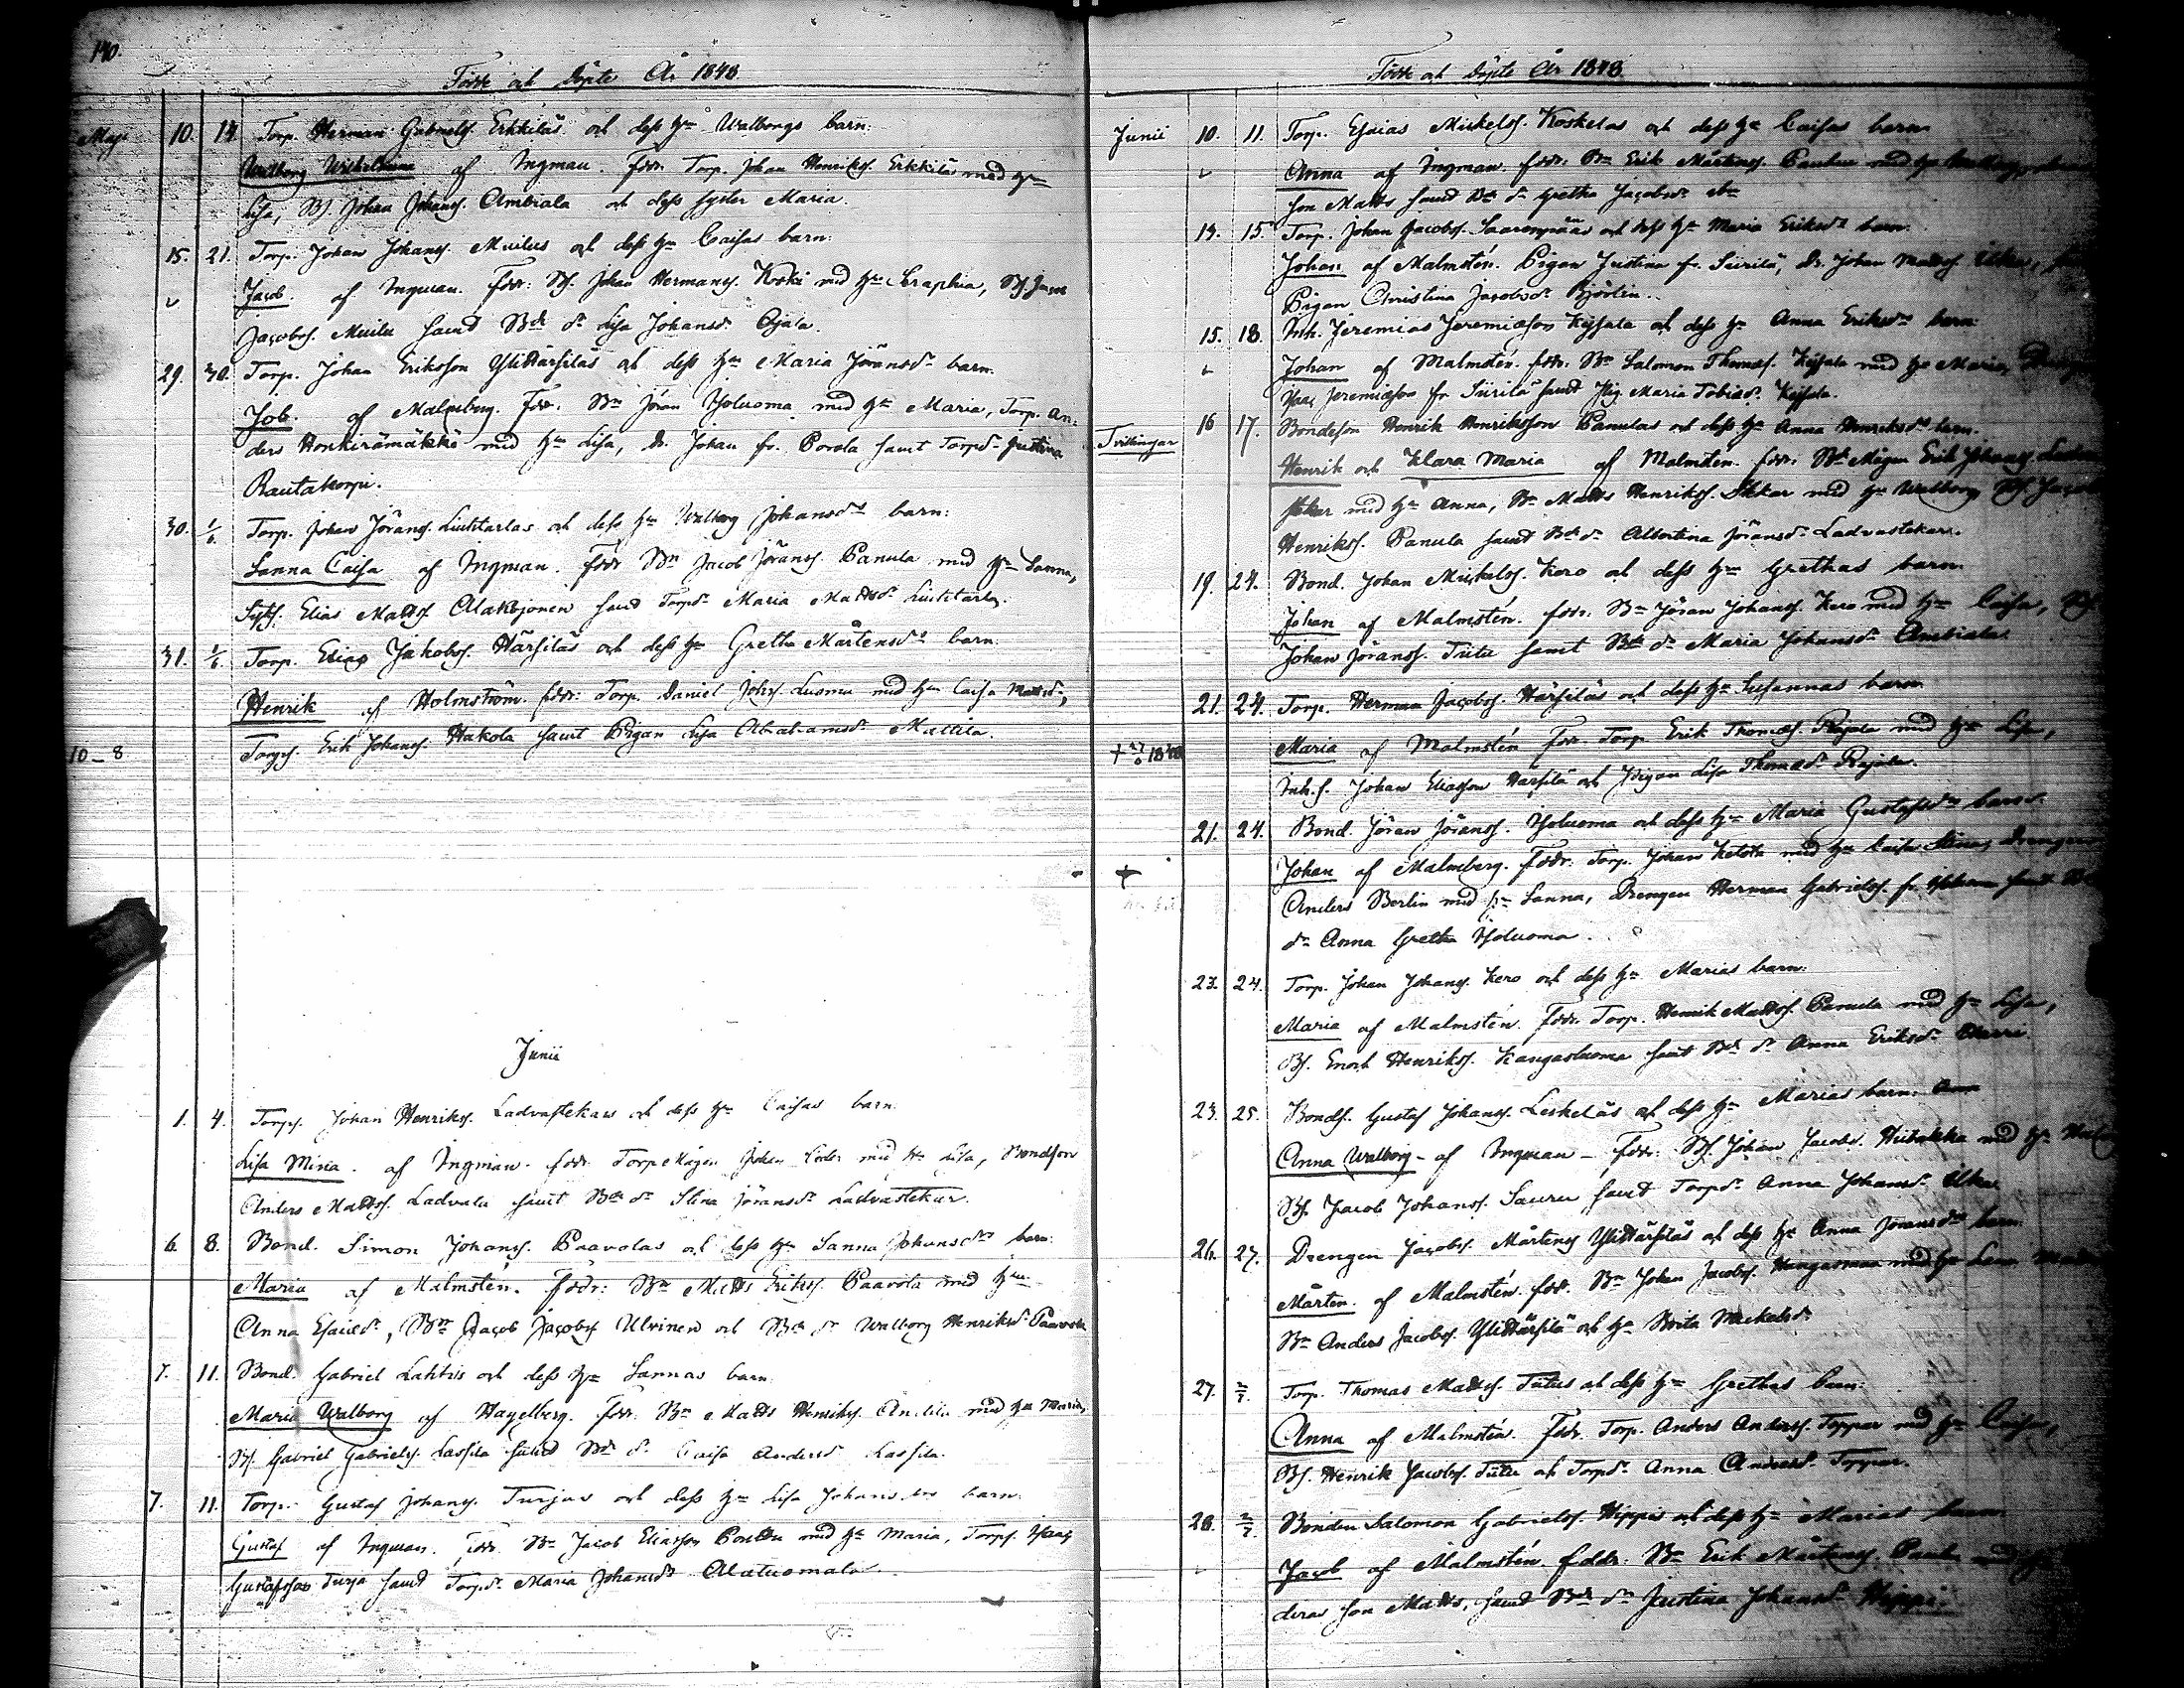 140.
Födde och Döpte År 1848.
Maji 10. 14. Torp. Herman Gabrielss. Erkkiläs och dess hu Walborgs barn:
Walborg Wilhelmina af Ingman. Fddr. Torp. Johan Henrikss. Erkkilä med hu
Lisa, Bs. Johan Johanss. Ambiala och dess syster Maria.
15. 21. Torp. Johan Johanss. Muilus och dess hu Caisas barn:
Jacob af Ingman. Fddr: Bs. Johan Hermanss. Koski med hu Seraphia, Bs. Jacob
Jacobss. Muilu samt Bde dr Lisa Johansdr Ojala.
29. 30. Torp. Johan Eriksson Ylihärsiläs och dess hu Maria Jöransdr barn.
Job. af Malmberg. Fddr. Bn Jöran Isoluoma med hu Maria, Torp. An-
ders Honkirämäkkö med hu Lisa, Dr. Johan fr. Porola samt Torpdr Justina
Rautakorpi.
30. 1/6. Torp. Johan Jöranss. Liuhtarlas och dess hu Walborg Johansdrs barn:
Sanna Caisa af Ingman. Fddr Bn Jacob Jöranss. Panula med hu Sanna,
Elias Matts. Alaksjonen samt Torpdr Maria Mattsdr Liuhtarla.
31. 1/6. Torp. Elias Jakobss. Härsiläs och dess hu Gretha Mårtensdrs barn.
Henrik af Holmström. fddr: Torp. Daniel Johss. Luoma med hu Caisa Mattsdr,
Torps. Erik Johanss. Hakola samt Pigan Lisa Abrahamsdr Mattila.
10 – 8
Junii
1. 4. Torps. Johan Henrikss. Ladvastekars och dess hu Caisas barn.
Lisa Mina. af Ingman. fddr. Torpemågen Johan med hu Lisa, Bondson
Anders Mattss. Ladvala samt Bde dr Stina Jöransdr Ladvastekar.
6. 8. Bond. Simon Johanss. Paavolas och dess hu Sanna Johansdrs barn:
Maria af Malmstén. Fddr: Bn Matts Erikss. Paavola med hu
Anna Esaiedr, Bn Jacob Jacobss Ulvinen och Bde dr Walborg Henriksdr Paavola
7. 11. Bond. Gabriel Lahtis och dess hu Sannas barn.
Maria Walborg af Hagelberg. Fddr. Bn Matts Henrikss. Anttila med hu Maria,
Bs. Gabriel Gabrielss. Lassila samt Bde dr Caisa Andersdr Lassila.
7. 11. Torp. Gustaf Johanss. Turjas och dess hu Lisa Johansdrs barn.
Gustaf af Ingman. Fddr. Bn Jacob Eliasson Pouttu med hu Maria, Torps. Isaac
Gustafsson Turja samt Torpdr Maria Johansdr Alatuomala.
Födde och Döpte År 1848.
Junii 10. 11. Torp. Esaias Mickelss. Koskelas och dess hu Caisas barn
Anna af Ingman. fddr: Bn Erik Mårtenss. Pauhu med hu
son Matts samt Bde dr Gretha Jacobsdr
14. 15. Torp. Johan Jacobss. Saarenpääs och dess hu Maria Eriksdrs barn.
Johan af Malmstén. Pigan Justina fr. Siirilä, Dr. Johan Mattss.
Pigan Christina Jacobsdr Björlin.
15. 18. Inh. Jeremias Jeremiasson Kysjala och dess hu Anna Eriksdrs barn:
Johan af Malmstén. fddr: Bn Salomon Thomass. Kysjala med hu Maria,
Isac Jeremiasson fr Siirilä samt Pig. Maria Tobiasdr. Kysjala.
Tvillingar 16 17. Bondeson Henrik Henriksson Panulas och dess hu Anna Henriksdrs barn.
Henrik och Klara Maria af Malmstén. fddr: Bde Mågen Erik Johanss.
med hu Anna, Bn Matts Henrikss. Skkar med hu Walborg, Bs. Jacob
Henrikss. Panula samt Bde dr Albertina Jöransdr Ladvastekar.
19. 24. Bond. Johan Mickelss. Kero och dess hu Grethas barn
Johan af Malmstén. fddr. Bn Jöran Johanss. Kero med hu Caisa, Bs.
Johan Jöranss. Tiitu samt Bde dr Maria Johansdr Ambiala.
21. 24. Torp. Herman Jacobss. Härsiläs och dess hu Susannas barn.
Maria af Malmstén Fddr. Torp Erik Thomass. Rajala med hu Lisa,
Inh.s. Johan Eliasson Harsilä och Pigan Lisa Thomasdr Rajala.
21. 24. Bond. Jöran Jöranss. Isoluoma och dess hu Maria Gustafsdrs barn.
Johan af Malmberg. Fddr. Torp. Johan Ketola med hu Caisa Stina, Drengen
Anders Berlin med hu Sanna, Drengen Herman Gabrielss. fr. Isoluoma samt
dr Anna Gretha Isoluoma.
23. 24. Torp. Johan Johanss. Kero och dess hu Marias barn:
Maria af Malmstén. Fddr. Torp. Henrik Mattss. Panula med hu Lisa,
Bs. Enoch Henrikss. Kangasluoma samt Bde dr Anna Eriksdr
23. 25. Bonds. Gustaf Johanss. Leskeläs och dess hu Marias barn.
Anna Walborg – af Ingman – Fddr: Bs. Johan Jacobss. Hietakka med hu
Bs. Jacob Johanss. Sauru samt Torpdr Anna Johansdr
26. 27. Drengen Jacobss. Mårtenss Ylihärsiläs och dess hu Anna Jöransdrs barn.
Mårten. af Malmstén. fddr. Bn Johan Jacobss. Hangasmaa med hu Lena
Bn Anders Jacobss. Ylihärsilä och hu Brita Mickelsdr
27. 2/7. Torp. Thomas Mattss. Tiitus och dess hu Grethas barn:
Anna af Malmstén. Fddr. Torp. Anders Anderss. Toppar med hu Caisa,
Bs. Henrik Jacobss. Tiitu och Torpdr Anna Andersdr Toppar.
28. 2/7. Bonden Salomon Gabrielss. Hippis och dess hu Marias barn
Jacob af Malmstén. fddr: Bn Erik Mårtenss. Pauhu med
deras son Matts, samt Bde dr Justina Johansdr Hippi.